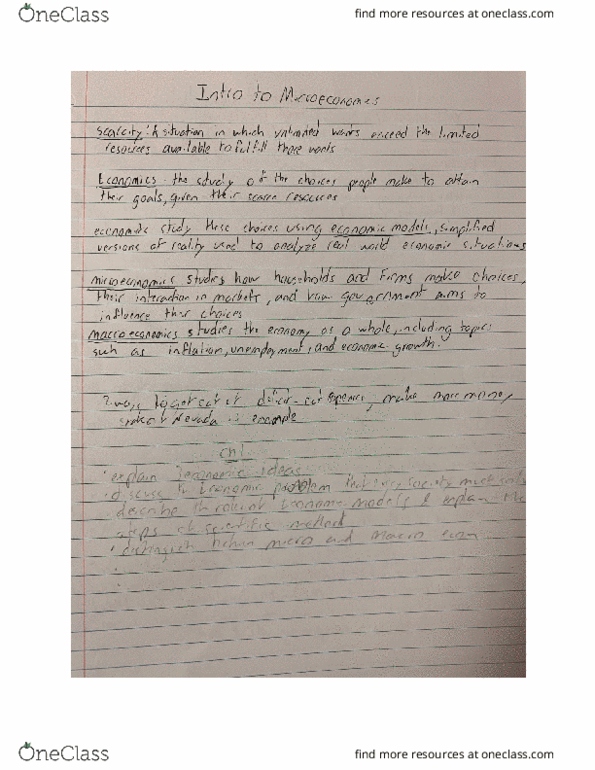 OneClass
find more resources at oneclass.com
Intro to Microeconomics
Scarcity: A situation in which unlimited wants exceed the limited
resources available to fulfill those wants
Economics - the study of the choices people make to attain
their goals, given their scarce resources
economists study these choices using economic models, simplified
versions of reality used to analyze real world economic situations
microeconomics studies how households and firms make choices,
their interaction in markets, and how government aims to
influence their choices
macroeconomics studies the economy as a whole, including topics
such as inflation, unemployment, and economic growth.
2 ways to get out of deficit - cut expenses, make more money,
state of Nevada is example
Ch1
explain 3 economic ideas
discuss the economic problem that every society must
describe the role of economic models & explain the
steps of scientific method
distinguish between micro and macro econ
OneClass
find more resources at oneclass.com